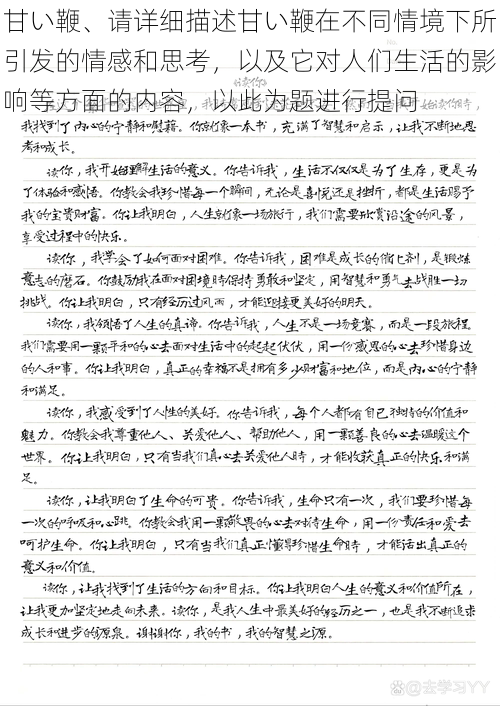 甘い鞭、请详细描述甘い鞭在不同情境下所
引发的情感和思考，以及它对人们生活的影
响等方面的内容，以此为题进行提问
读你
读你时，
我找到了内心的宁静和慰藉。你就像一本书，充满了智慧和启示，让我不断地思
考和成长。
读你，我开始理解生活的意义。你告诉我，生活不仅仅是为了生存，更是为
了体验和感悟。你教会我珍惜每一个瞬间，无论是喜悦还是挫折，都是生活赐予
我的宝贵财富。你让我明白，人生就像一场旅行，我们需要欣赏沿途的风景，
享受过程中的快乐。
读你，我学会了如何面对困难。你告诉我，困难是成长的催化剂，是锻炼
意志的磨石。你鼓励我在面对困境时保持勇敢和坚定，用智慧和勇气去战胜一切
挑战。你让我明白，只有经历过风雨，才能迎接更美好的明天。
读你，我领悟了人生的真谛。你告诉我，人生不是一场竞赛，而是一段旅程。
我们需要用一颗平和的心去面对生活中的起起伏伏，用一份感恩的心去珍惜身边
的人和事。你让我明白，真正的幸福不是拥有多少财富和地位，而是内心的宁静
和满足。
读你，我感受到了人性的美好。你告诉我，每个人都有自己独特的价值和
魅力。你教会我尊重他人、关爱他人、帮助他人，用一颗善良的心去温暖这个
世界。你让我明白，只有当我们真心去关爱他人时，才能收获真正的快乐和满
足。
读你，让我明白了生命的可贵。你告诉我，生命只有一次，我们要珍惜每
一次的呼吸和心跳。你教会我用一颗敬畏的心去对待生命，用一份责任和爱去
呵护生命。你让我明白，只有当我们真正懂得珍惜生命时，才能活出真正的
意义和价值。
读你，让我找到了生活的方向和目标。你让我明白人生的意义和价值所在，
让我更加坚定地走向未来。读你，是我人生中最美好的经历之一，也是我不断追求
成长和进步的源泉。谢谢你，我的书，我的智慧之源。
@去学习YY